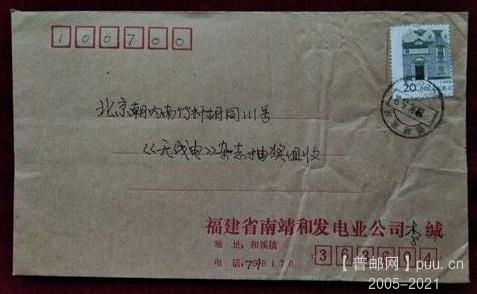 100700
20
北京朝内南竹杆胡同111号
《无线电》杂志抽奖组收
福建省南靖和发电业公司李缄
地 址：和溪镇
电 话：7098170
363604
【普邮网】puu.cn
2005-2021